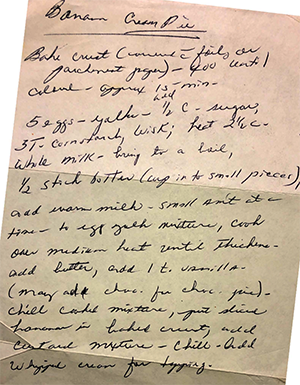 Banana Cream Pie
Bake crust (covered c̄ foil, or
parchment paper) - 400 until
colored - approx 15 - min -
5 eggs - yolks - ½ C - sugar,
3T - cornstarch, wisk; heat 2½ C -
whole milk - bring to a boil,
½ stick butter (cup in to small pieces)
add warm milk - small amt at a
time - to egg yolk mixture, cook
over medium heat until thickens -
add butter, add 1 t. vanilla -
(may add choc. for choc. pie) -
chill cooked mixture, put slice
bananas in baked crust, add
custard mixture - chill - add
whipped cream for topping.